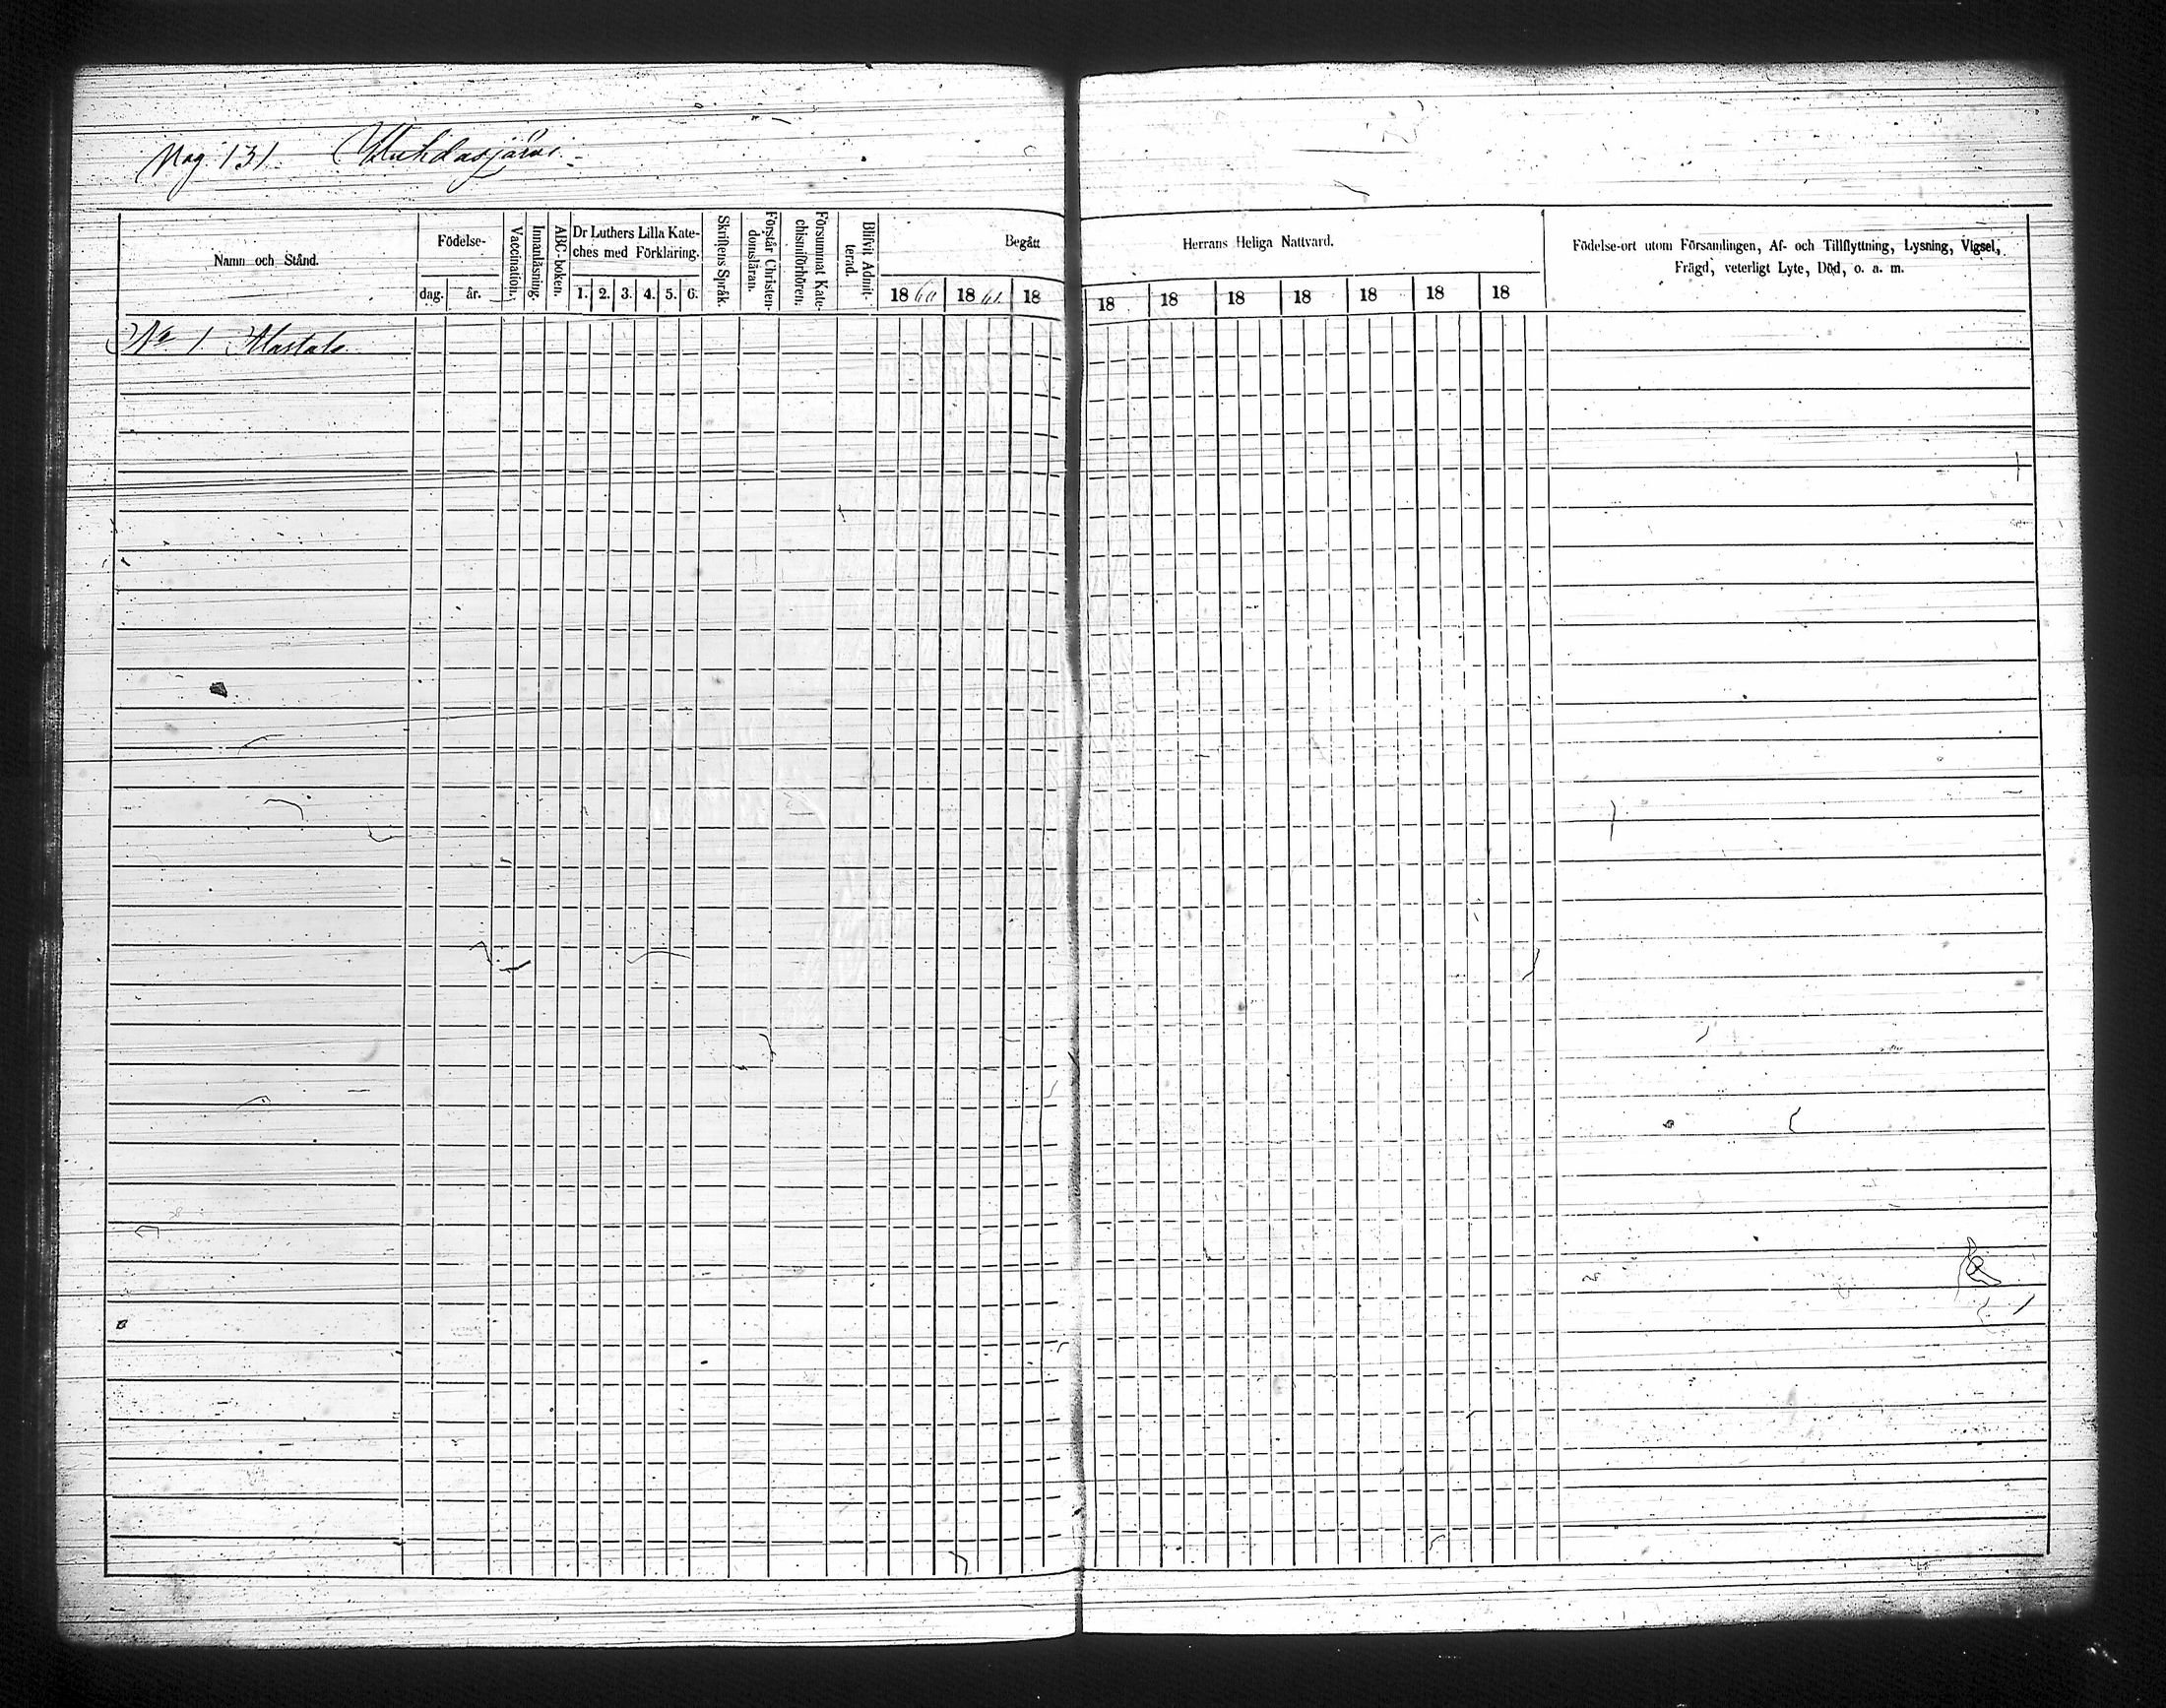 Pag. 131. Uuhdasjärvi.
Namn och Stånd.
Födelse-
dag. år.
Vaccination.
Innanläsning.
ABC-boken.
Dr Luthers Lilla Kate-
ches med Förklaring.
1. 2. 3. 4. 5. 6.
Skriftens Språk.
Förstår Christen-
domsläran.
Försummat Kate-
chismiförhören.
Blifvit Admit-
terad.
Begått Herrans Heliga Nattvard.
1860 1861 18 18 18 18 18 18 18 18
Födelse-ort utom Församlingen, Af- och Tillflyttning, Lysning, Vigsel,
Frägd, veterligt Lyte, Död, o. a. m.
No 1 Alastalo